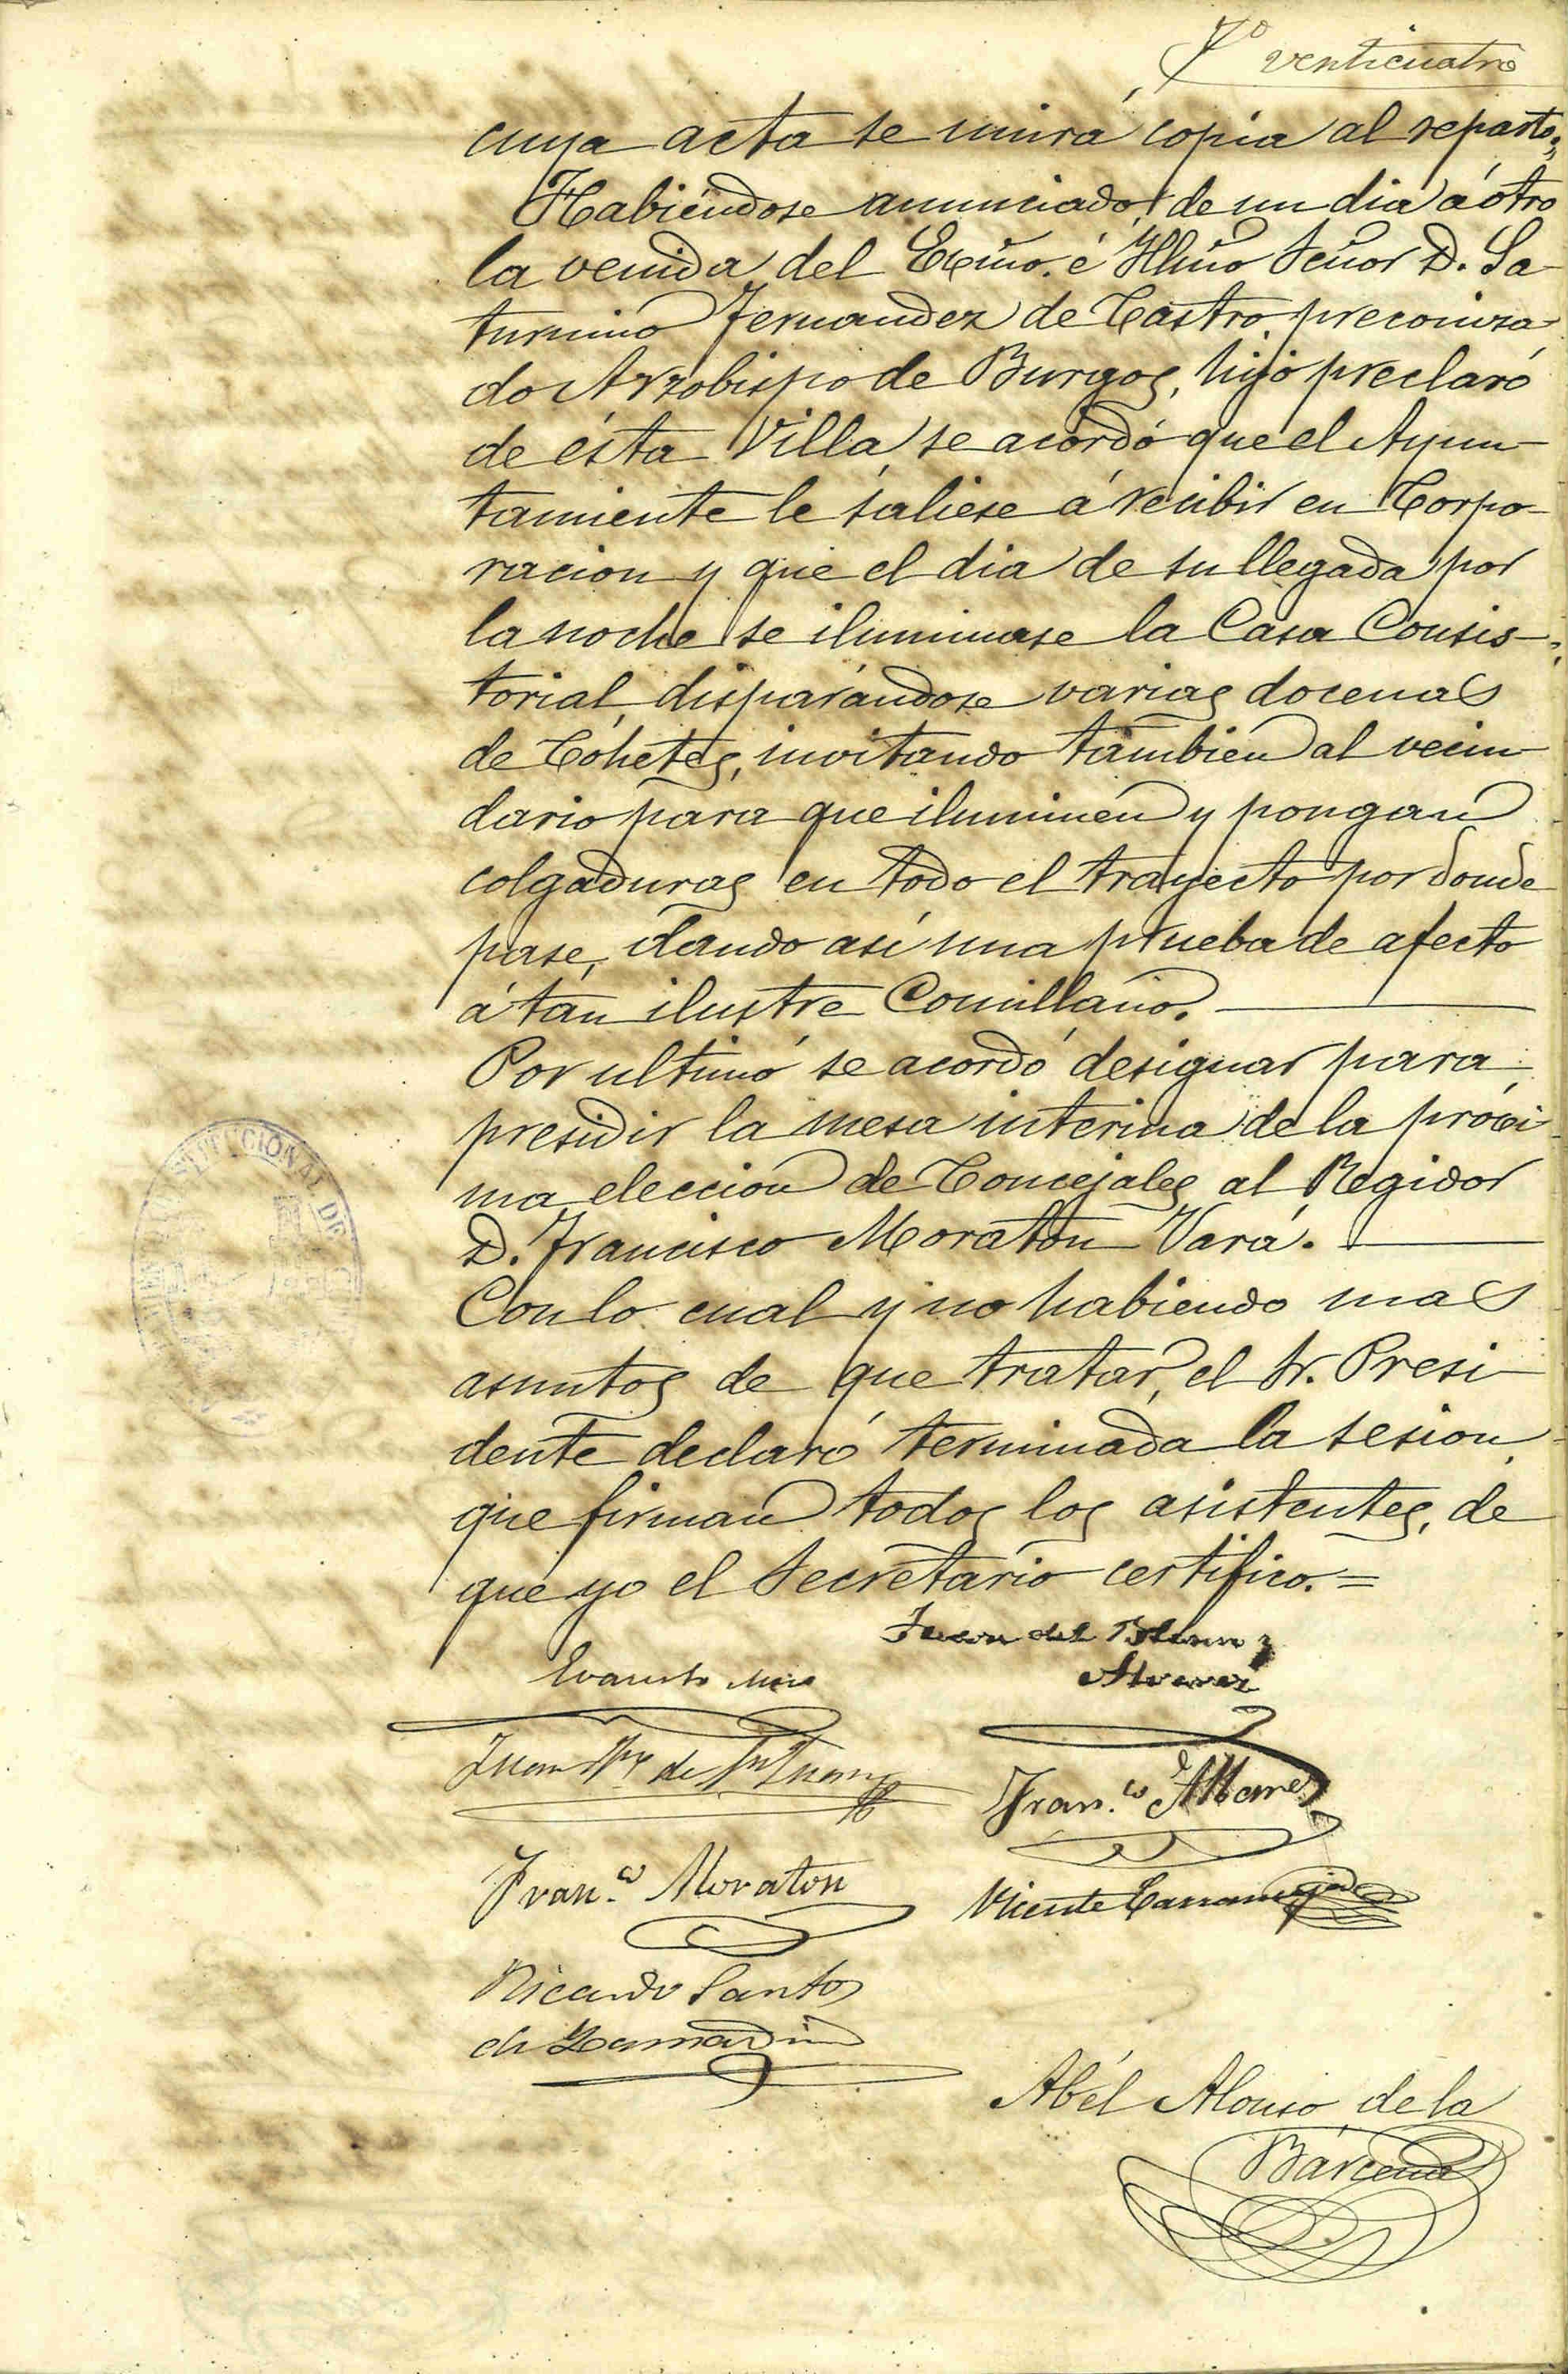 Fº venticuatro
cuya acta se unirá copia al reparto;
Habiéndose anunciado de un dia á otro
la venida del Excmo. é Illmo Señor D. Sa-
turnino Fernandez de Castro preconiza-
do Arzobispo de Burgos, hijo preclaro
de ésta Villa, se acordó que el Ayun-
tamiente le saliese á recibir en Corpo-
racion y que el dia de su llegada por
la noche se iluminase la Casa Consis-
torial, disparándose varias docenas
de Cohetes, invitando tambien al vecin-
dario para que iluminen y pongan
colgaduras en todo el trayecto por donde
pase, dando asi una prueba de afecto
á tan ilustre Comillano.
Por ultimo se acordó designar para
presidir la mesa interina de la próxi-
ma eleccion de Concejales al Regidor
D. Francisco Moraton Vara.
Con lo cual y no habiendo mas
asuntos de que tratar, el Sr. Presi-
dente declaró terminada la sesion,
que firman todos los asistentes, de
que yo el Secretario certifico.=
Juan del
Evaristo
Alvarez
Juan de
Fran.co
Fran.co Moraton
Vicente
Ricardo Santos
de
Abél Alonso de la
Bárcena
STITUCIONAL DE